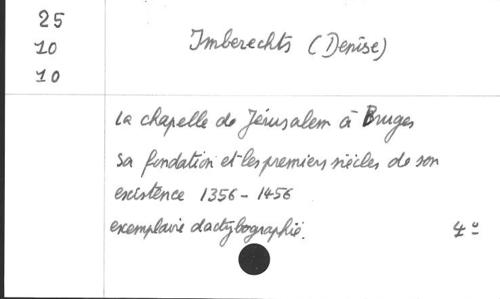 25
10
10
Imberechts (Denise)
La chapelle de Jérusalem à Bruges
Sa fondation et les premiers siècles de son
existence 1356 - 1456
exemplaire dactylographié.
4°